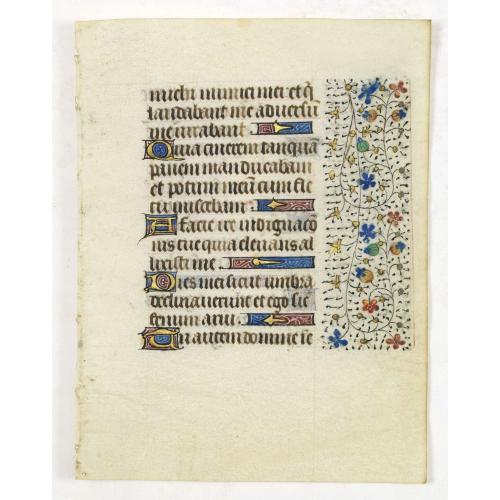 michi inimici mei et q̄
laudabant me aduersū
me iurabant
Quia cinerem tanquā
panem manducabam
et potum meū cum fle
tu miscebam
A facie ire indignacō
nis tue quia eleuans al
lisisti me
Dies mei sicut umbra
declinauerunt et ego sic
fenum arui
Tu autem domine in